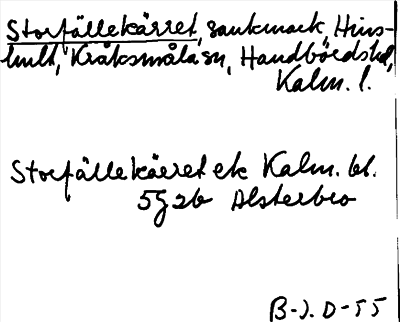 Storfällekärret, sankmark, Hins-
hult, Kråksmåla sn, Handbörds hd,
Kalm. l.
Storfällekärret ek Kalm. bl.
5g2b Alsterbro
B-J. D-55